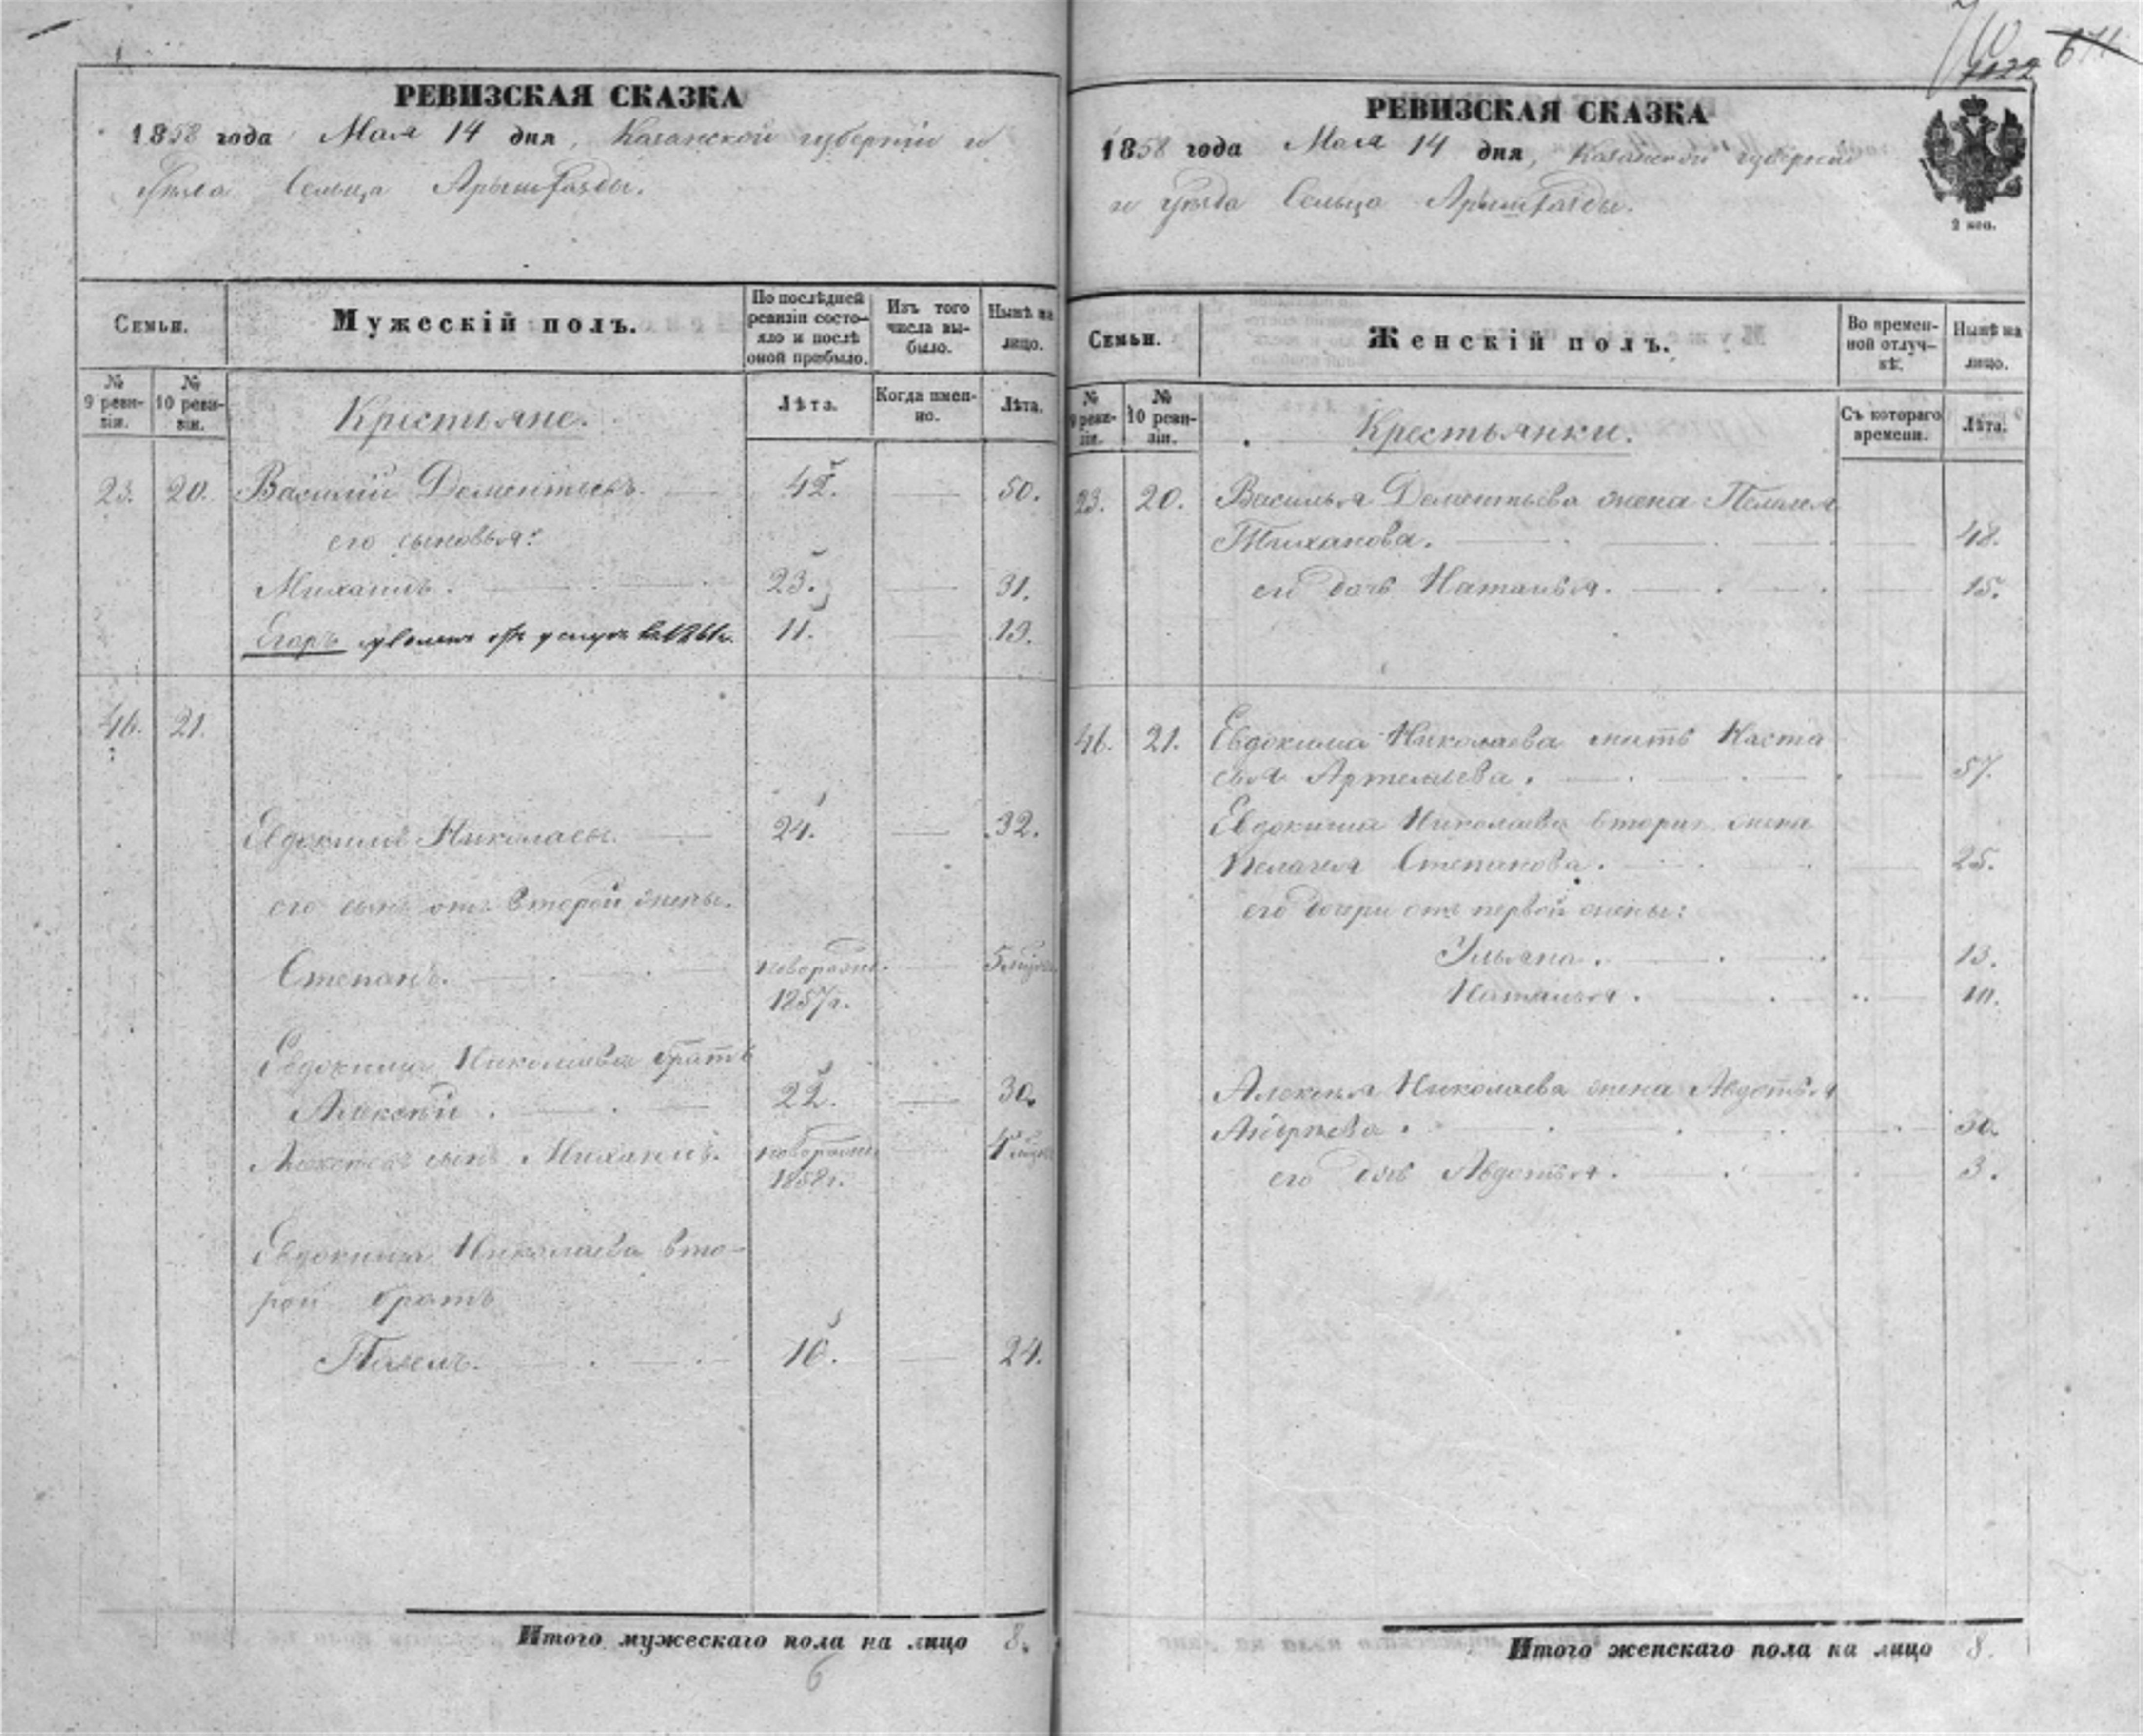 РЕВИЗСКАЯ СКАЗКА
1858 года Мая 14 дня, Казанской губерніи и
Уѣзда Сельца Арышхазды.
Семьи.
Мужескій полъ.
По послѣдней ревизіи состояло и послѣ оной прибыло.
Изъ того числа выбыло.
Нынѣ на лицо.
№ 9 ревизіи.
№ 10 ревизіи.
Крестьяне.
Лѣта.
Когда именно.
Лѣта.
23. 20. Василій Дементьевъ. 42. 50.
его сыновья:
Михаилъ. 23. 31.
Егоръ 11. 19.
46. 21.
Евдокимъ Николаевъ. 24. 32.
его сынъ отъ второй жены.
Степанъ. новорожд. 5 мѣсяц.
1857 г.
Евдокима Николаева братъ
Алексѣй. 22. 30.
Алексѣевъ сынъ Михаилъ. новорожд. 4 мѣсяц.
1858 г.
Евдокима Николаева вто-
рой братъ
Павелъ. 16. 24.
Итого мужескаго пола на лицо 8.
6
710
1122 671
РЕВИЗСКАЯ СКАЗКА
1858 года Мая 14 дня, Казанской губерніи
и Уѣзда Сельца Арышхазды.
2 коп.
Семьи.
Женскій полъ.
Во временной отлучкѣ.
Нынѣ на лицо.
№ 9 ревизіи.
№ 10 ревизіи.
Крестьянки.
Съ котораго времени.
Лѣта.
23. 20. Василья Дементьева жена Пелагея
Тиханова. 48.
его дочь Наталья. 15.
46. 21. Евдокима Николаева мать Наста
сья Артемьева. 57.
Евдокима Николаева вторая жена
Пелагея Степанова. 25.
его дочери отъ первой жены:
Ульяна. 13.
Наталья. 10.
Алексѣя Николаева жена Авдотья
Андреева. 30.
его дочь Авдотья. 3.
Итого женскаго пола на лицо 8.